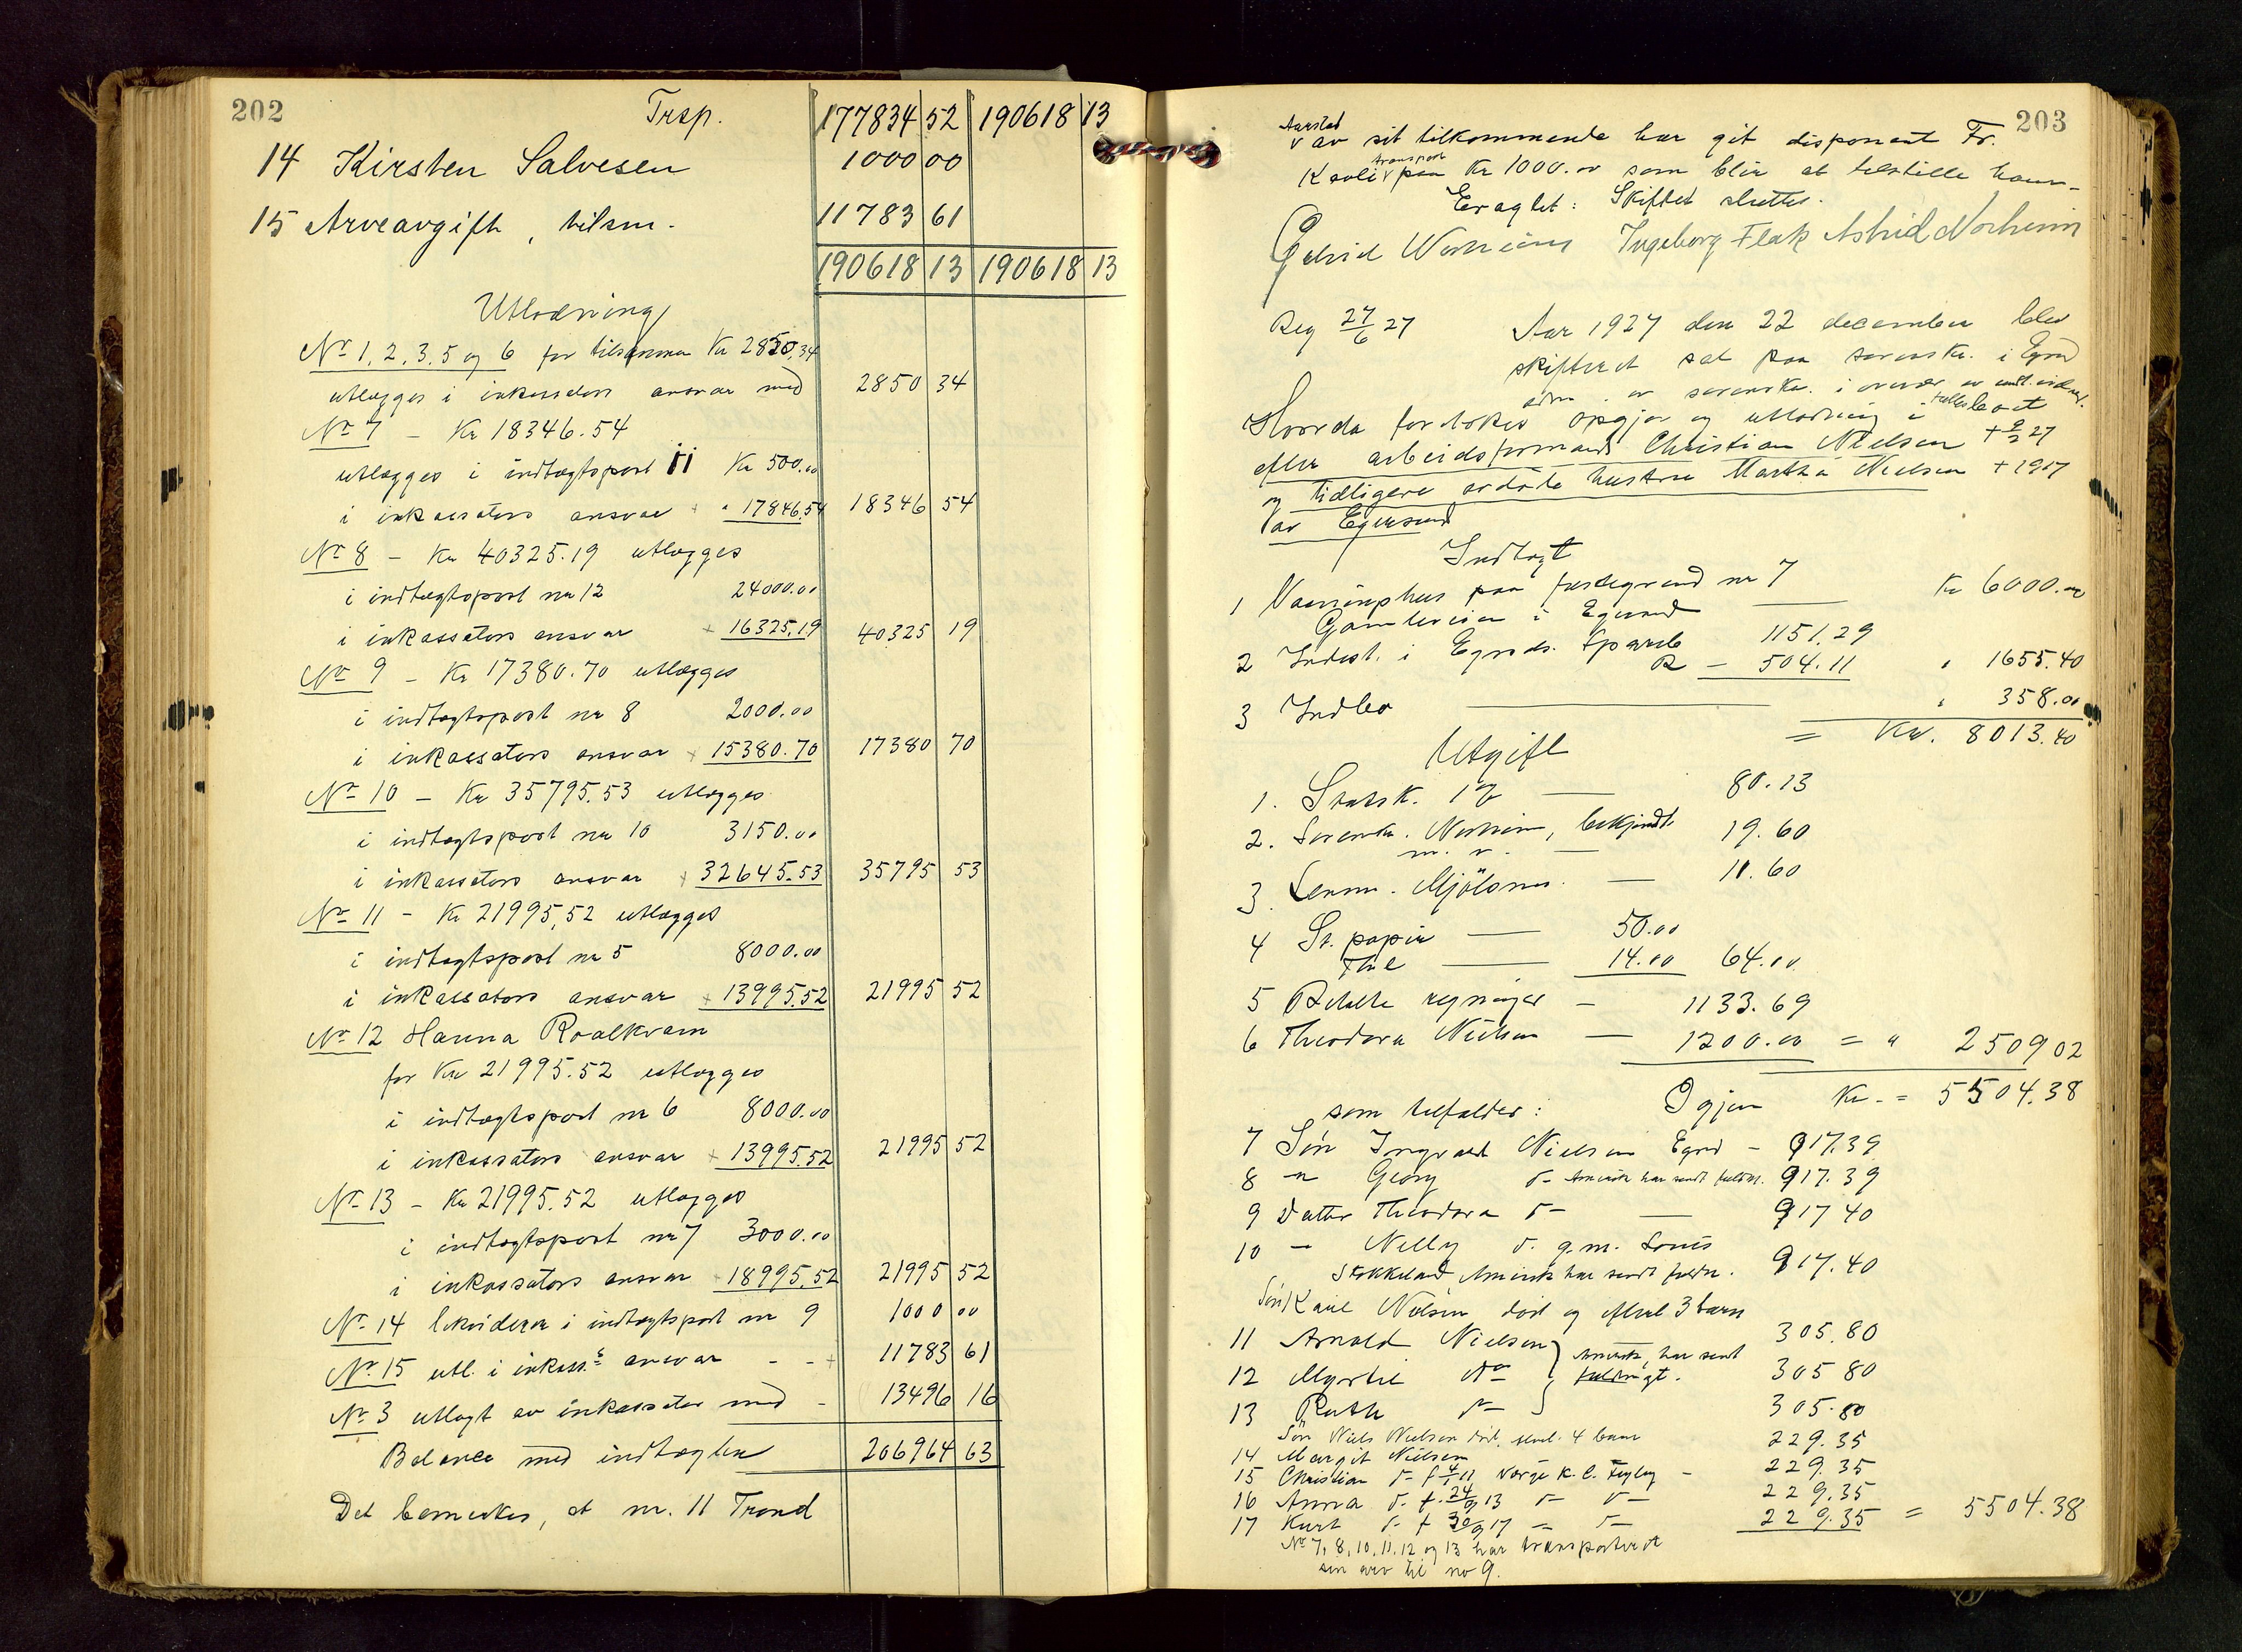 202
Trsp. 177834 52 190618 13
14 Kirsten Salvesen 1000 00
15 Arveavgift, tilsm. 11783 61
190618 13 190618 13
Utlodning
No 1, 2, 3, 5 og 6 for tilsammen Kr 2850,34
utlægges i inkassators ansvar med 2850 34
No 7 – Kr 18346.54
utlægges i indtægtspost 11 Kr 500.00
i inkassators ansvar + " 17846.54 18346 54
No 8 – Kr 40325.19 utlægges
i indtægtspost nr 12 24000.00
i inkassators ansvar + 16325.19 40325 19
No 9 – Kr 17380.70 utlægges
i indtægtspost nr 8 2000.00
i inkassators ansvar + 15380.70 17380 70
No 10 – Kr 35795.53 utlægges
i indtægtspost nr 10 3150.00
i inkassators ansvar + 32645.53 35795 53
No 11 – Kr 21995,52 utlægges
i indtægtspost nr 5 8000.00
i inkassators ansvar + 13995.52 21995 52
No 12 Hanna Roalkvam
for Kr 21995.52 utlægges
i indtægtspost nr 6 8000.00
i inkassators ansvar + 13995.52 21995 52
No 13 – Kr 21995.52 utlægges
i indtægtspost nr 7 3000.00
i inkassators ansvar + 18995.52 21995 52
No 14 likviderer i indtægtspost nr 9 1000 00
No 15 utl. i inkass.s ansvar - - + 11783 61
No 3 utlagt av inkassator med - 13496 16
Balance med indtægten 206964 63
Det bemerkes, at nr. 11 Trond
203
Aarstad
v av sit tilkommende har git disponent Fr.
transport
Kavli v paa Kr 1000.00 som blir at tilstille ham –
Eraglet: Skiftet sluttes.
Norheim Ingeborg Flak Astrid Norheim
Reg 27/6 27 Aar 1927 den 22 december blev
skifteret sat paa sorensk. i Egrsd
adm. av sorenskr. i overvær av undt. vidner.
Hvorda foretokes opgjør og utlodning i fællesboet
efter arbeidsformand Christian Nielsen + 27
og tidligere avdøde hustru Martha Nielsen + 1917
av Egersund
Indtægt
1 Vaaningshus paa festegrund nr 7
Gamleveien i Egersund — Kr 6000.00
2 Indest. i Egrsds. Spareb 1151.29
R – 504.11 " 1655.40
3 Indbo — " 358.00
= Kr. 8013.40
Utgift
1. Statsk. 1% — 80.13
2. Sorenskr. Norheim, bekjendt.
m. v. — 19.60
3. Lensm. Mjölsnes. — 11.60
4 St. papir — 50.00
Thl — 14.00 64.00
5 Betalte regninger – 1133.69
6 Theodora Nielsen — 1200.00 = " 2509 02
Igjen Kr. = 5504.38
som tilfalder:
7 Søn Ingvald Nielsen Egrsd – 917.39
8 – " Georg d– Amerika har sendt fuldm. 917.39
9 Datter Theodora d– — 917 40
10 – Nelly d. g. m. Louis
Stokkeland Amerika har sendt fuldm. 917.40
Søn Karl Nielsen død og efterl 3 barn
11 Arnold Nielsen 305.80
12 Myrtle do } Amerika, har sendt fuldmagt. 305 80
13 Ruth d– 305.80
Søn Niels Nielsen död, efterl. 4 barn
14 Margit Nielsen 229.35
15 Christian d– f 4/4 11 Værge K. C. – 229.35
16 Anna d. f. 24/9 13 d– d– 229.35
17 Kurt d– f 30/9 17 – d– 229.35 = 5504.38
No 7, 8, 10, 11, 12 og 13 har transportert
sin arv til no 9.